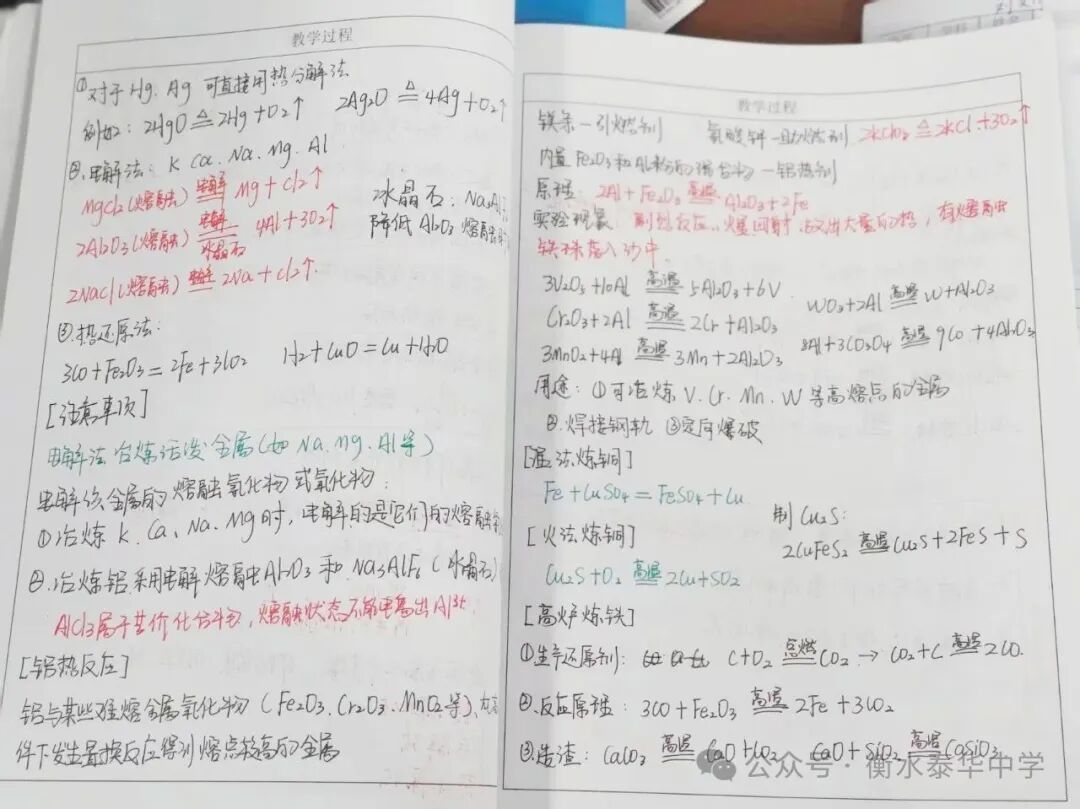 教学过程
①对于Hg、Ag 可直接用热分解法
例如：2HgO ≜ 2Hg+O₂↑ 2Ag₂O ≜ 4Ag+O₂↑
②.电解法：K Ca、Na、Mg、Al
MgCl₂(熔融) 电解 Mg+Cl₂↑
冰晶石：Na₃Al
2Al₂O₃(熔融) 电解 冰晶石 4Al+3O₂↑
降低Al₂O₃熔融
2NaCl(熔融) 电解 2Na+Cl₂↑
③.热还原法：
3CO+Fe₂O₃=2Fe+3CO₂ H₂+CuO=Cu+H₂O
[注意事项]
电解法冶炼活泼金属(如Na、Mg、Al等)
电解该金属的熔融氯化物或氧化物：
①冶炼K、Ca、Na、Mg时，电解的是它们的熔融
②.冶炼铝采用电解熔融Al₂O₃和Na₃AlF₆(冰晶石)
AlCl₃属于共价化合物，熔融状态不能电离出Al³⁺
[铝热反应]
铝与某些难熔金属氧化物(Fe₂O₃、Cr₂O₃、MnO₂等)、在高
件下发生置换反应得到熔点较高的金属
教学过程
镁条—引燃剂 氯酸钾—助燃剂 2KClO₃ ≜ 2KCl+3O₂↑
内置Fe₂O₃和Al粉的混合物—铝热剂
原理：2Al+Fe₂O₃ 高温 Al₂O₃+2Fe
实验现象：剧烈反应、火星四射、放出大量的热，有熔融
铁珠落入沙中
3V₂O₅+10Al 高温 5Al₂O₃+6V WO₃+2Al 高温 W+Al₂O₃
Cr₂O₃+2Al 高温 2Cr+Al₂O₃
8Al+3Co₃O₄ 高温 9Co+4Al₂O₃
3MnO₂+4Al 高温 3Mn+2Al₂O₃
用途：①可冶炼V、Cr、Mn、W等高熔点的金属
②.焊接钢轨 ③定向爆破
[湿法炼铜]
Fe+CuSO₄=FeSO₄+Cu
制Cu₂S：
[火法炼铜] 2CuFeS₂ 高温 Cu₂S+2FeS+S
Cu₂S+O₂ 高温 2Cu+SO₂
[高炉炼铁]
①生产还原剂：C+O₂ 点燃 CO₂→CO₂+C 高温 2CO
②.反应原理：3CO+Fe₂O₃ 高温 2Fe+3CO₂
③.造渣：CaCO₃ 高温 CaO+CO₂ CaO+SiO₂ 高温 CaSiO₃
公众号·衡水泰华中学